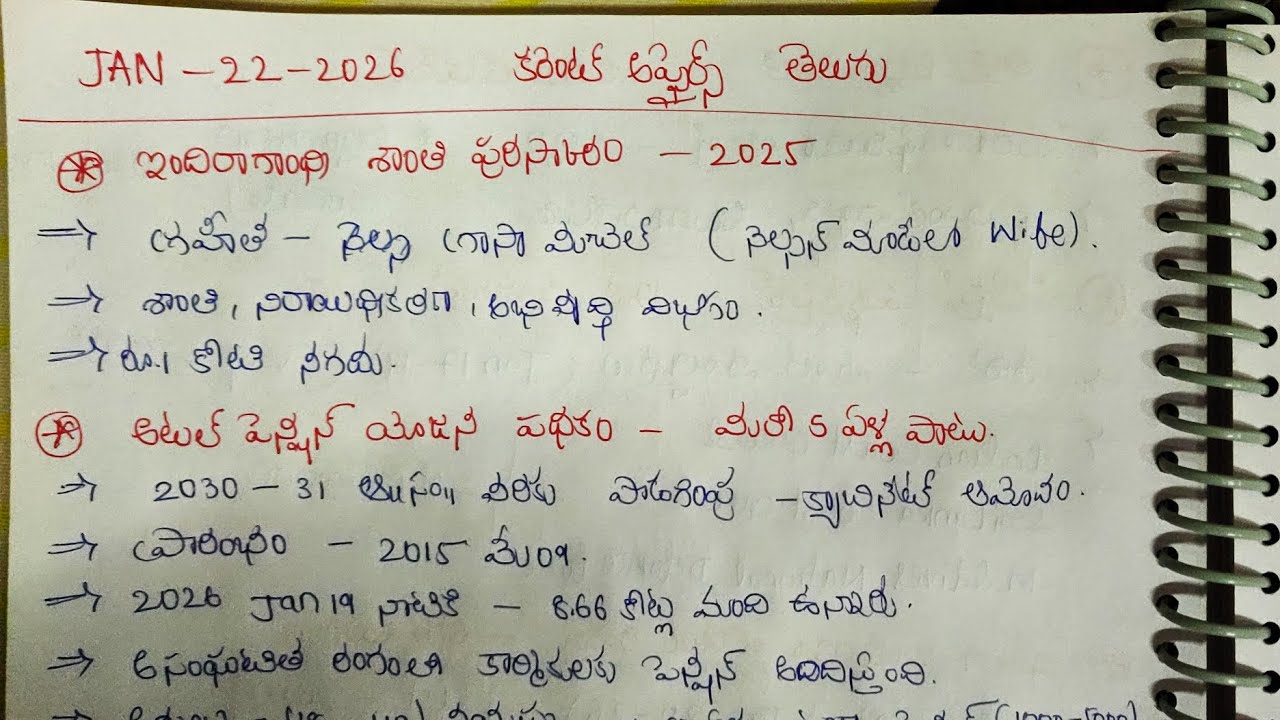 JAN - 22 - 2026 కరెంట్ అఫైర్స్ తెలుగు
ఇందిరాగాంధీ శాంతి పురస్కారం - 2025
⇒ గ్రహీత - గ్రాసా మిచెల్ (నెల్సన్ మండేలా Wife).
⇒ శాంతి, నిరాయుధీకరణ, అభివృద్ధి విభాగం.
⇒ రూ.1 కోటి నగదు.
అటల్ పెన్షన్ యోజన పథకం - మరో 5 ఏళ్ల పాటు.
⇒ 2030 - 31 ఆ.సం॥ వరకు పొడగింపు - క్యాబినేట్ ఆమోదం.
⇒ ప్రారంభం - 2015 మే 09.
⇒ 2026 Jan 19 నాటికి - 8.66 కోట్ల మంది ఉన్నారు.
⇒ అసంఘటిత రంగంలో కార్మికులకు పెన్షన్ అందిస్తుంది.